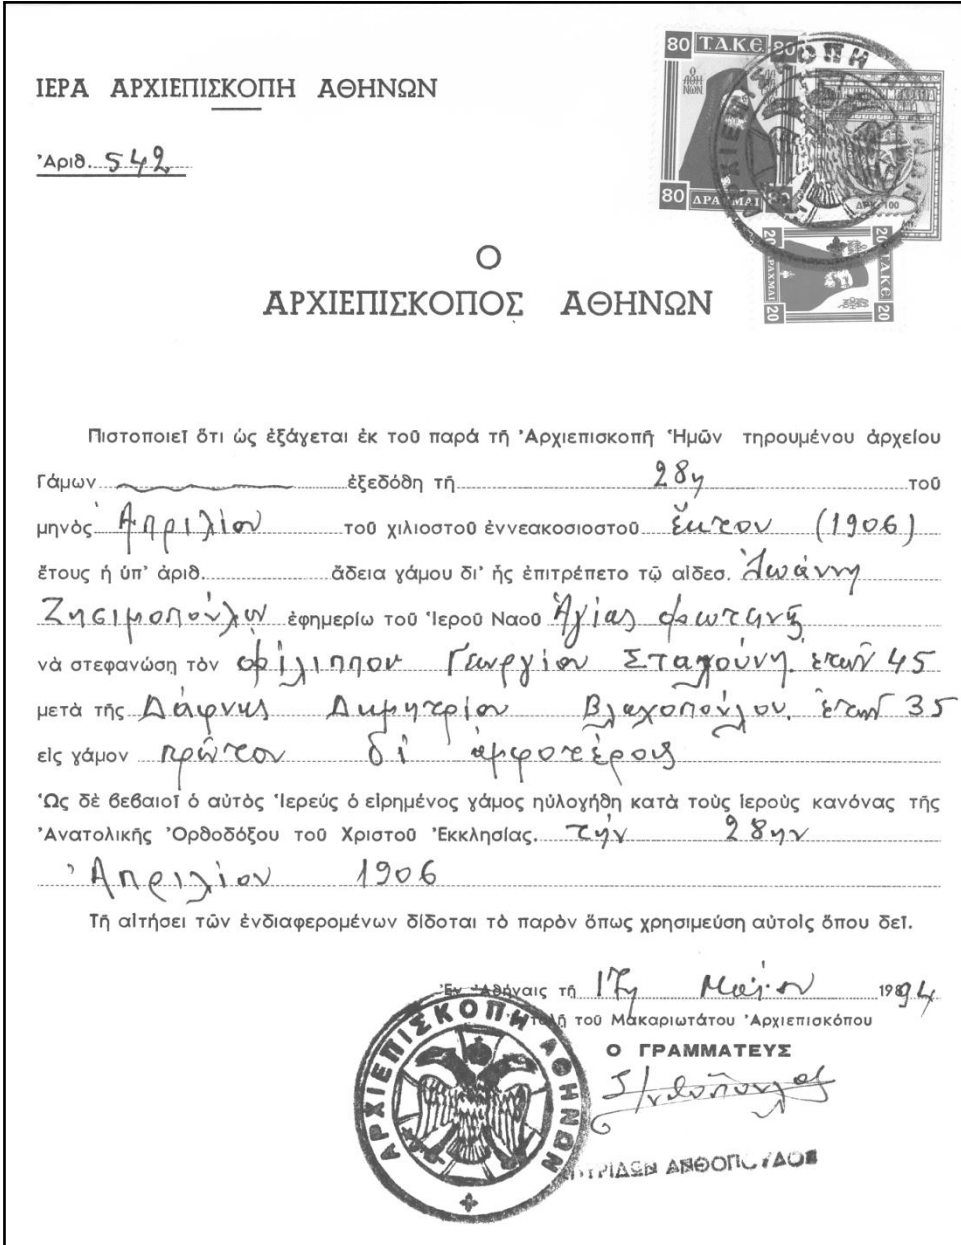 ΙΕΡΑ ΑΡΧΙΕΠΙΣΚΟΠΗ ΑΘΗΝΩΝ
Ἀριθ. 542
80 Τ.Α.Κ.Ε. 80
Ο ΑΘΗΝΩΝ
80 ΔΡΑΧΜΑΙ 80
ΔΡΧ. 100
20 Τ.Α.Κ.Ε. 20
20 ΔΡΑΧΜΑΙ 20
ΑΡΧΙΕΠΙΣΚΟΠΗ
Ο
ΑΡΧΙΕΠΙΣΚΟΠΟΣ ΑΘΗΝΩΝ
Πιστοποιεῖ ὅτι ὡς ἐξάγεται ἐκ τοῦ παρά τῇ Ἀρχιεπισκοπῇ Ἡμῶν τηρουμένου ἀρχείου
Γάμων ἐξεδόθη τῇ 28η τοῦ
μηνός Ἀπριλίου τοῦ χιλιοστοῦ ἐννεακοσιοστοῦ ἕκτου (1906)
ἔτους ἡ ὑπ' ἀριθ. ἄδεια γάμου δι' ἧς ἐπιτρέπετο τῷ αἰδεσ. Ἰωάννῃ
Ζησιμοπούλῳ ἐφημερίῳ τοῦ Ἱεροῦ Ναοῦ Ἁγίας Φωτεινῆς
νὰ στεφανώσῃ τὸν Φίλιππον Γεωργίου Σταμούνη, ἐτῶν 45
μετὰ τῆς Δάφνης Δημητρίου Βλαχοπούλου, ἐτῶν 35
εἰς γάμον πρῶτον δι' ἀμφοτέρους
Ὡς δὲ βεβαιοῖ ὁ αὐτὸς Ἱερεύς ὁ εἰρημένος γάμος ηὐλογήθη κατὰ τοὺς ἱεροὺς κανόνας τῆς
Ἀνατολικῆς Ὀρθοδόξου τοῦ Χριστοῦ Ἐκκλησίας. τήν 28ην
Ἀπριλίου 1906
Τῇ αἰτήσει τῶν ἐνδιαφερομένων δίδοται τὸ παρὸν ὅπως χρησιμεύσῃ αὐτοῖς ὅπου δεῖ.
Ἐν Ἀθήναις τῇ 17η Μαΐου 1994
τοῦ Μακαριωτάτου Ἀρχιεπισκόπου
Ο ΓΡΑΜΜΑΤΕΥΣ
ΑΡΧΙΕΠΙΣΚΟΠΗ ΑΘΗΝΩΝ
ΑΝΘΟΠΟΥΛΟΣ